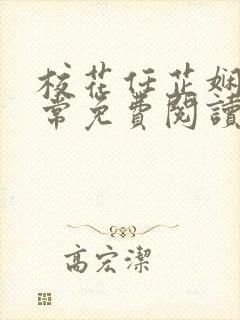 校花任芷娴
常免費閱讀
高宏潔